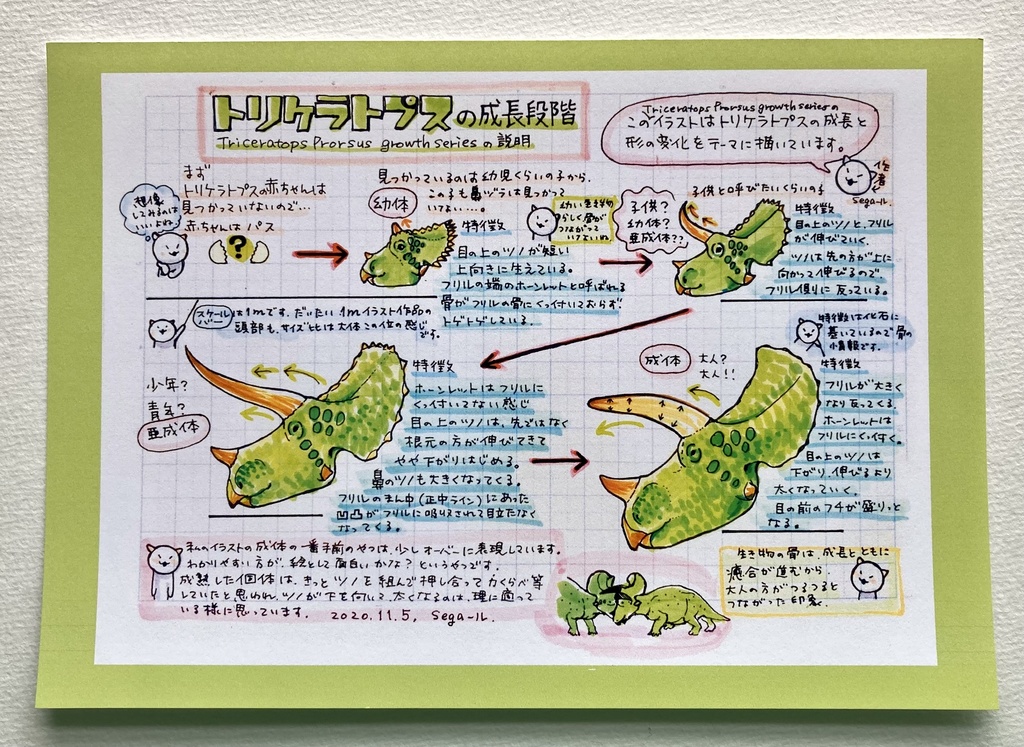 トリケラトプスの成長段階
Triceratops Prorsus growth seriesの説明
Triceratops Prorsus growth seriesの
このイラストはトリケラトプスの成長と
形の変化をテーマに描いています。
作者
Segaール.
まず
トリケラトプスの赤ちゃんは
見つかっていないので…
赤ちゃんは パス
想像
してみるのは
いいよね
?
見つかっているのは幼児くらいの子から.
この子も鼻ヅラは見つかって
いけない….
幼体
特徴
目の上のツノが短い
上向きに生えている。
フリルの端のホーンレットと呼ばれる
骨がフリルの骨にくっ付いておらず
トゲトゲしている.
幼い生き物
らしく骨が
つながって
いけないね
子供?
幼体?
亜成体??
子供と呼びたいくらいの子
特徴
目の上のツノと、フリル
が伸びていく.
ツノは先の方が上に
向かって伸びるので、
フリル側に反っている。
スケールバーは1mです. だいたい1mイラスト作品の
頭部も、サイズ比は大体この位の感じ
です。
少年?
青年?
亜成体
特徴
ホーンレットはフリルに
くっ付いてない感じ
目の上のツノは、先ではなく
根元の方が伸びてきて
やや下がりはじめる。
鼻のツノも大きくなってくる.
フリルのまん中(正中ライン)にあった
凹凸がフリルに吸収されて目立たなく
なってくる.
成体
大人?
大人!!
特徴は化石に
基いているので骨の
情報です。
特徴
フリルが大きく
なり反ってくる。
ホーンレットは
フリルにくっ付く。
目の上のツノは
下がり、伸びるより
太くなっていく.
目の前のフチが盛りっと
なる.
私のイラストの成体の一番手前のやつは、少しオーバーに表現しています。
わかりやすい方が、絵として面白いかな?というやつです。
成熟した個体は、きっとツノを組んで押し合って力くらべ等
していたと思われ、ツノが下を向いて、太くなるのは、理に適って
いる様に思っています。 2020.11.5, Segaール.
生き物の骨は、成長とともに
癒合が進むから
大人の方がつるつると
つながった印象.